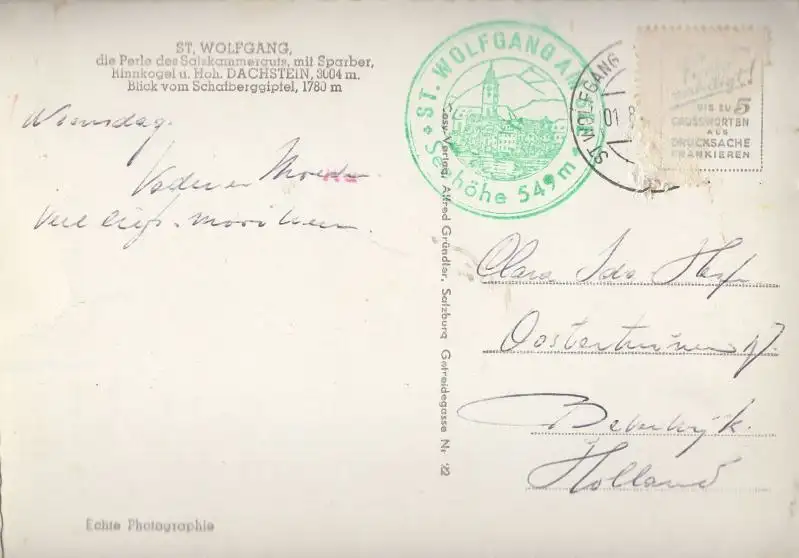 ST. WOLFGANG,
die Perle des Salzkammerguts, mit Sparber,
Rinnkogel u. Hoh. DACHSTEIN, 3004 m.
Blick vom Schafberggipfel, 1780 m
Woensdag.
Vader en Moeder
Veel liefs
ST. WOLFGANG AM SEE
Seehöhe 549 m
ST WOLFGANG
01
BIS ZU 5
GRUSSWORTEN
ALS
DRUCKSACHE
FRANKIEREN
Cosy-Verlag Alfred Gründler, Salzburg Getreidegasse Nr. 22
Clara Ida
Beverwijk.
Holland
Echte Photographie